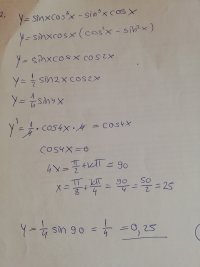 2. y = sinxcos³x - sin³x cosx
y = sinxcosx (cos²x - sin²x)
y = sinxcosx cos2x
y = 1/2 sin2x cos2x
y = 1/4 sin4x
y' = 1/4 · cos4x · 4 = cos4x
cos4x = 0
4x = π/2 + kπ = 90
x = π/8 + kπ/4 = 90/4 = 50/2 = 25
y = 1/4 sin 90 = 1/4 = 0,25